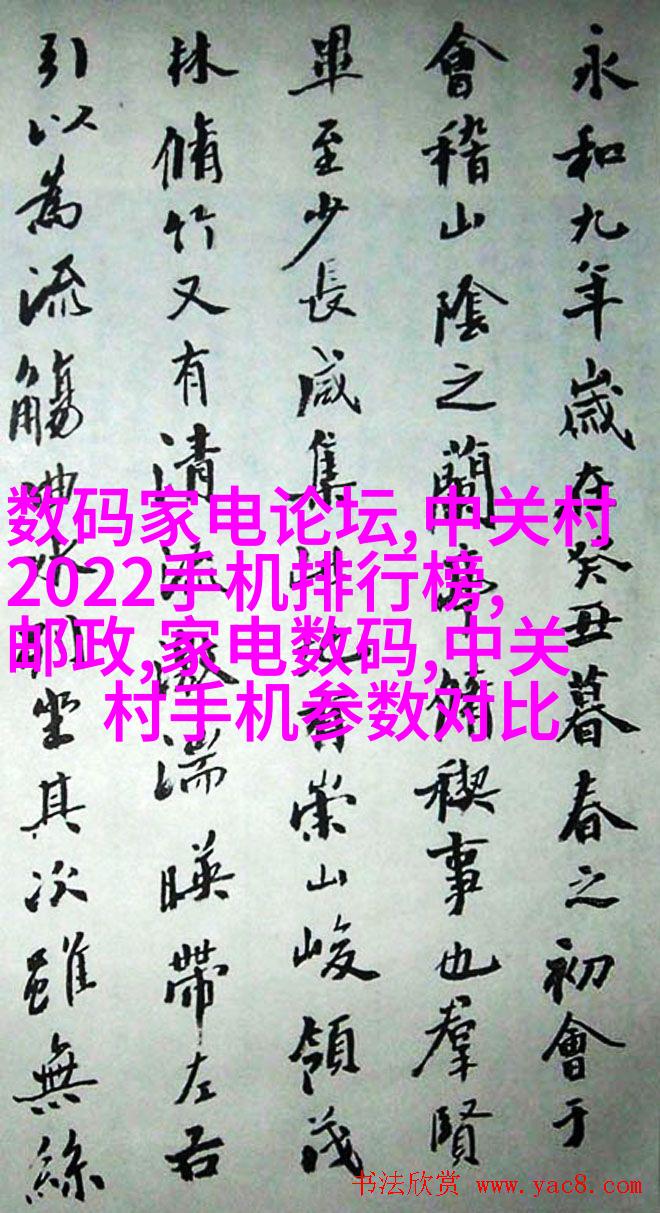 永和九年歲在癸丑暮春之初會于
會稽山陰之蘭亭脩稧事也羣賢
畢至少長咸集此地有崇山峻領茂
林脩竹又有清流激湍暎帶左右
引以為流觴曲水列坐其次雖無絲
数码家电论坛,中关村
2022手机排行榜,
邮政,家电数码,中关
村手机参数对比
书法欣赏 www.yac8.com